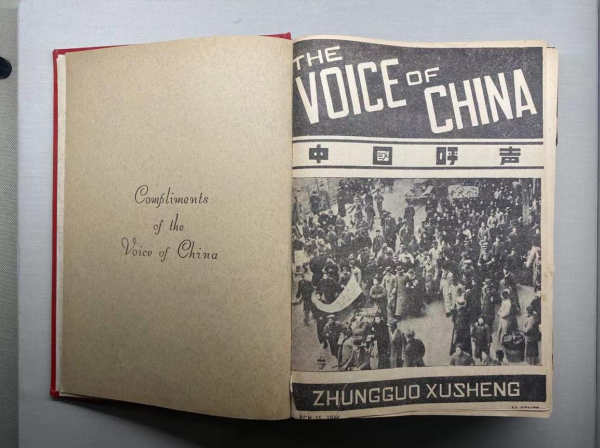 Compliments
of the
Voice of China
THE
VOICE OF
CHINA
中國呼声
ZHUNGGUO XUSHENG